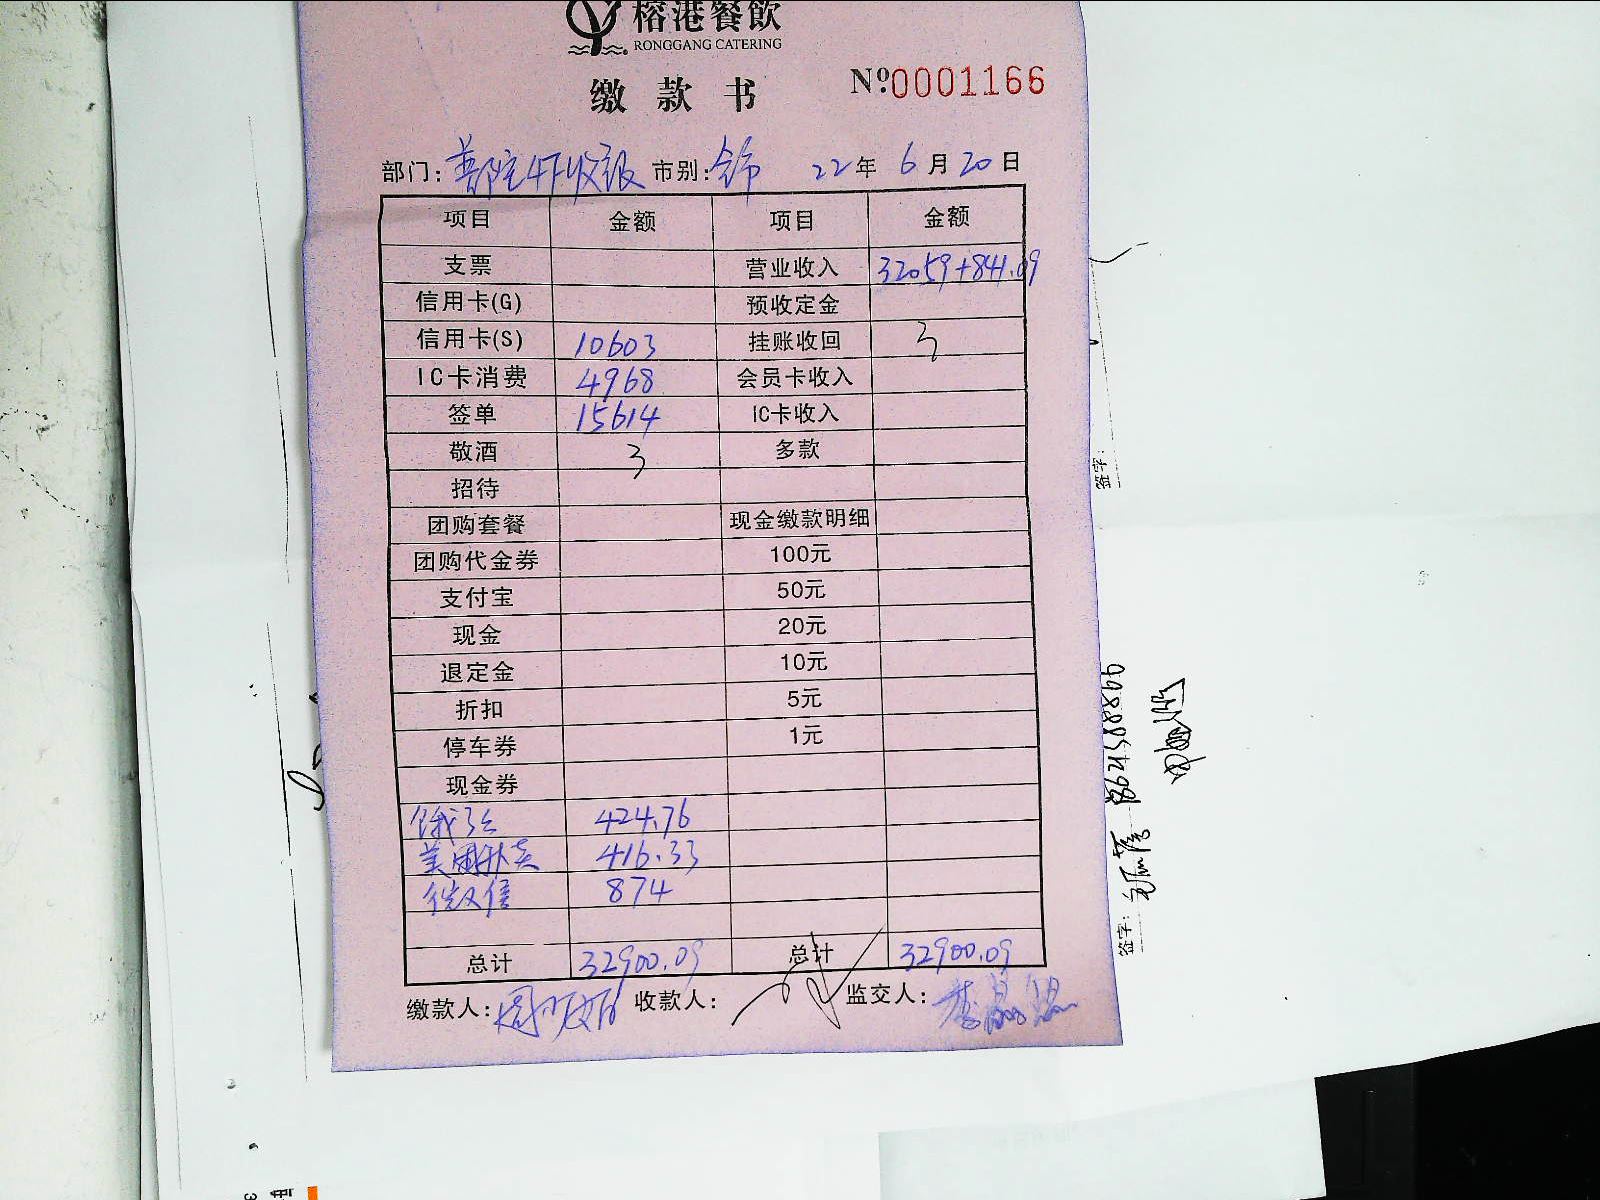 榕港餐飲
RONGGANG CATERING
缴款书
Nº:0001166
部门: 市别:全市 22年 6月 20日
项目 金额 项目 金额
支票 营业收入 32059+841.09
信用卡(G) 预收定金
信用卡(S) 10603 挂账收回 3
IC卡消费 4968 会员卡收入
签单 15614 IC卡收入
敬酒 3 多款
招待
团购套餐 现金缴款明细
团购代金券 100元
支付宝 50元
现金 20元
退定金 10元
折扣 5元
停车券 1元
现金券
饿了么 424.76
美团外卖 416.33
微信 874
总计 32900.09 总计 32900.09
缴款人: 收款人: 监交人:
签字:
签字: